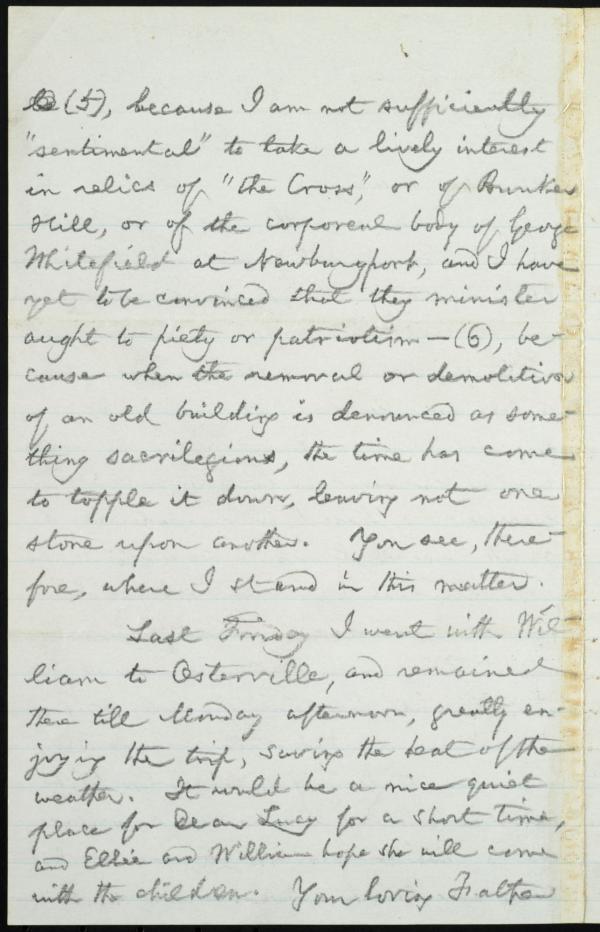 (5), because I am not sufficiently
"sentimental" to take a lively interest
in relics of "the Cross", or of Bunker
Hill, or of the corporeal body of George
Whitefield at Newburyport, and I have
yet to be convinced that they minister
aught to piety or patriotism — (6), be-
cause when the removal or demolition
of an old building is denounced as some-
thing sacrilegious, the time has come
to topple it down, leaving not one
stone upon another. You see, there-
fore, where I stand in this matter.
Last Friday I went with Wil-
liam to Osterville, and remained
there till Monday afternoon, greatly en-
joying the trip, saving the heat of the
weather. It would be a nice quiet
place for dear Lucy for a short time,
and Ellie and William hope she will come
with the children. Your loving Father